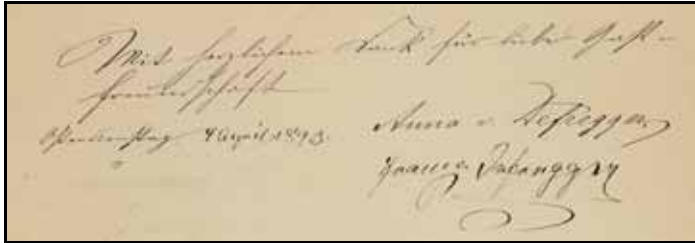 Mit herzlichem Dank für liebe Gast-
freundschaft
4 April 1893.
Anna v. Defregger
Franz v. Defregger